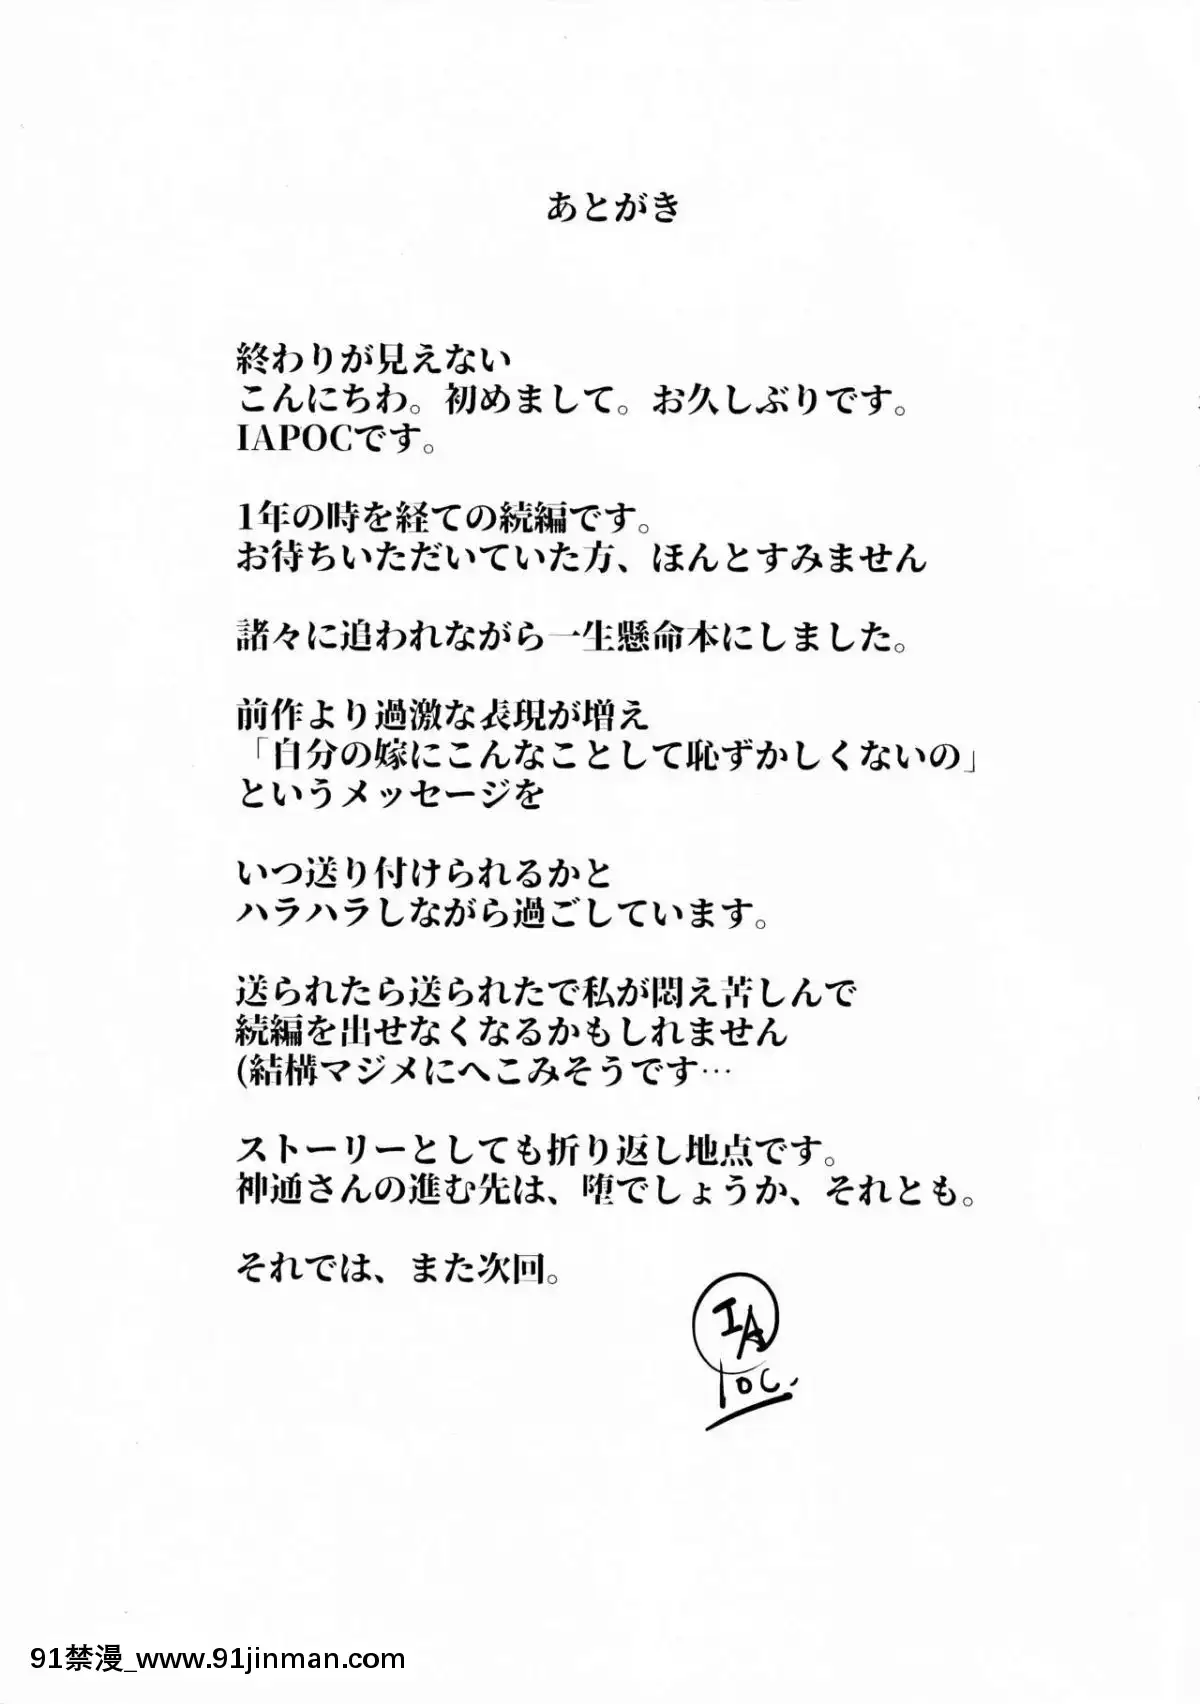 あとがき
終わりが見えない
こんにちわ。初めまして。お久しぶりです。
IAPOCです。
1年の時を経ての続編です。
お待ちいただいていた方、ほんとすみません
諸々に追われながら一生懸命本にしました。
前作より過激な表現が増え
「自分の嫁にこんなことして恥ずかしくないの」
というメッセージを
いつ送り付けられるかと
ハラハラしながら過ごしています。
送られたら送られたで私が悶え苦しんで
続編を出せなくなるかもしれません
(結構マジメにへこみそうです…
ストーリーとしても折り返し地点です。
神通さんの進む先は、堕でしょうか、それとも。
それでは、また次回。
IA
POC.
91禁漫_www.91jinman.com